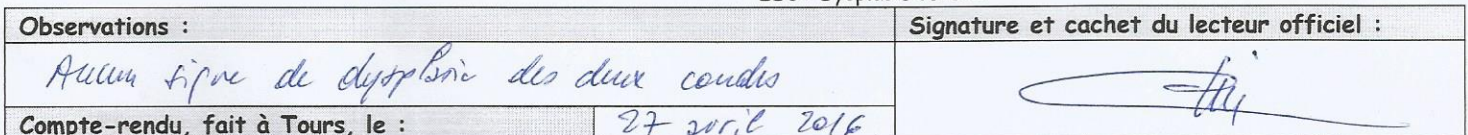 Observations :
Signature et cachet du lecteur officiel :
Aucun signe de dysplasie des deux coudes
Compte-rendu, fait à Tours, le :
27 avril 2016